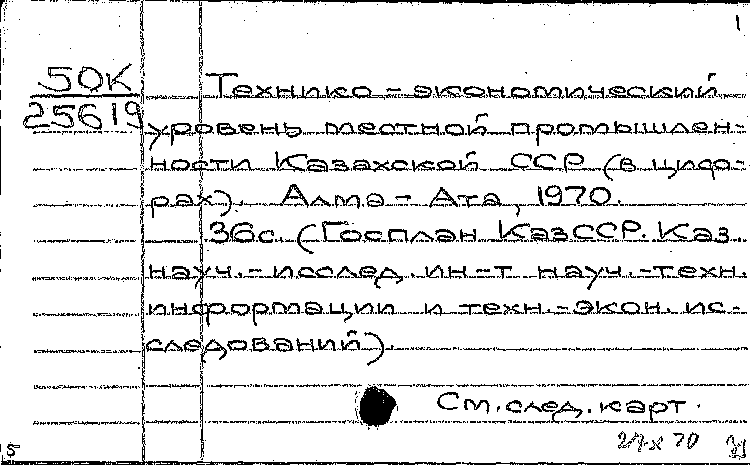 1
50К
25619
Технико-экономический
уровень местной промышлен-
ности Казахской ССР (в циф-
рах). Алма-Ата, 1970.
36с. (Госплан КазССР. Каз.
науч.-исслед. ин-т науч.-техн.
информации и техн.-экон. ис-
следований).
См. след. карт.
70
5